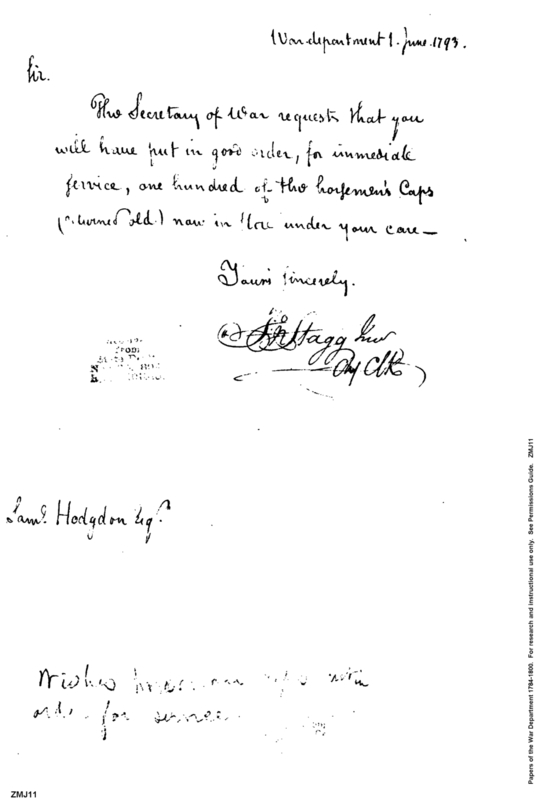 War department 1. June. 1793.
Sir.
The Secretary of War requests that you
will have put in good order, for immediate
service, one hundred of the horsemen's Caps
(returned old) now in store under your care—
Yours sincerely.
Jn Stagg Junr
Clk
Saml. Hodgdon Esqr.
from
order for service
Papers of the War Department 1784-1800. For research and instructional use only. See Permissions Guide. ZMJ11
ZMJ11